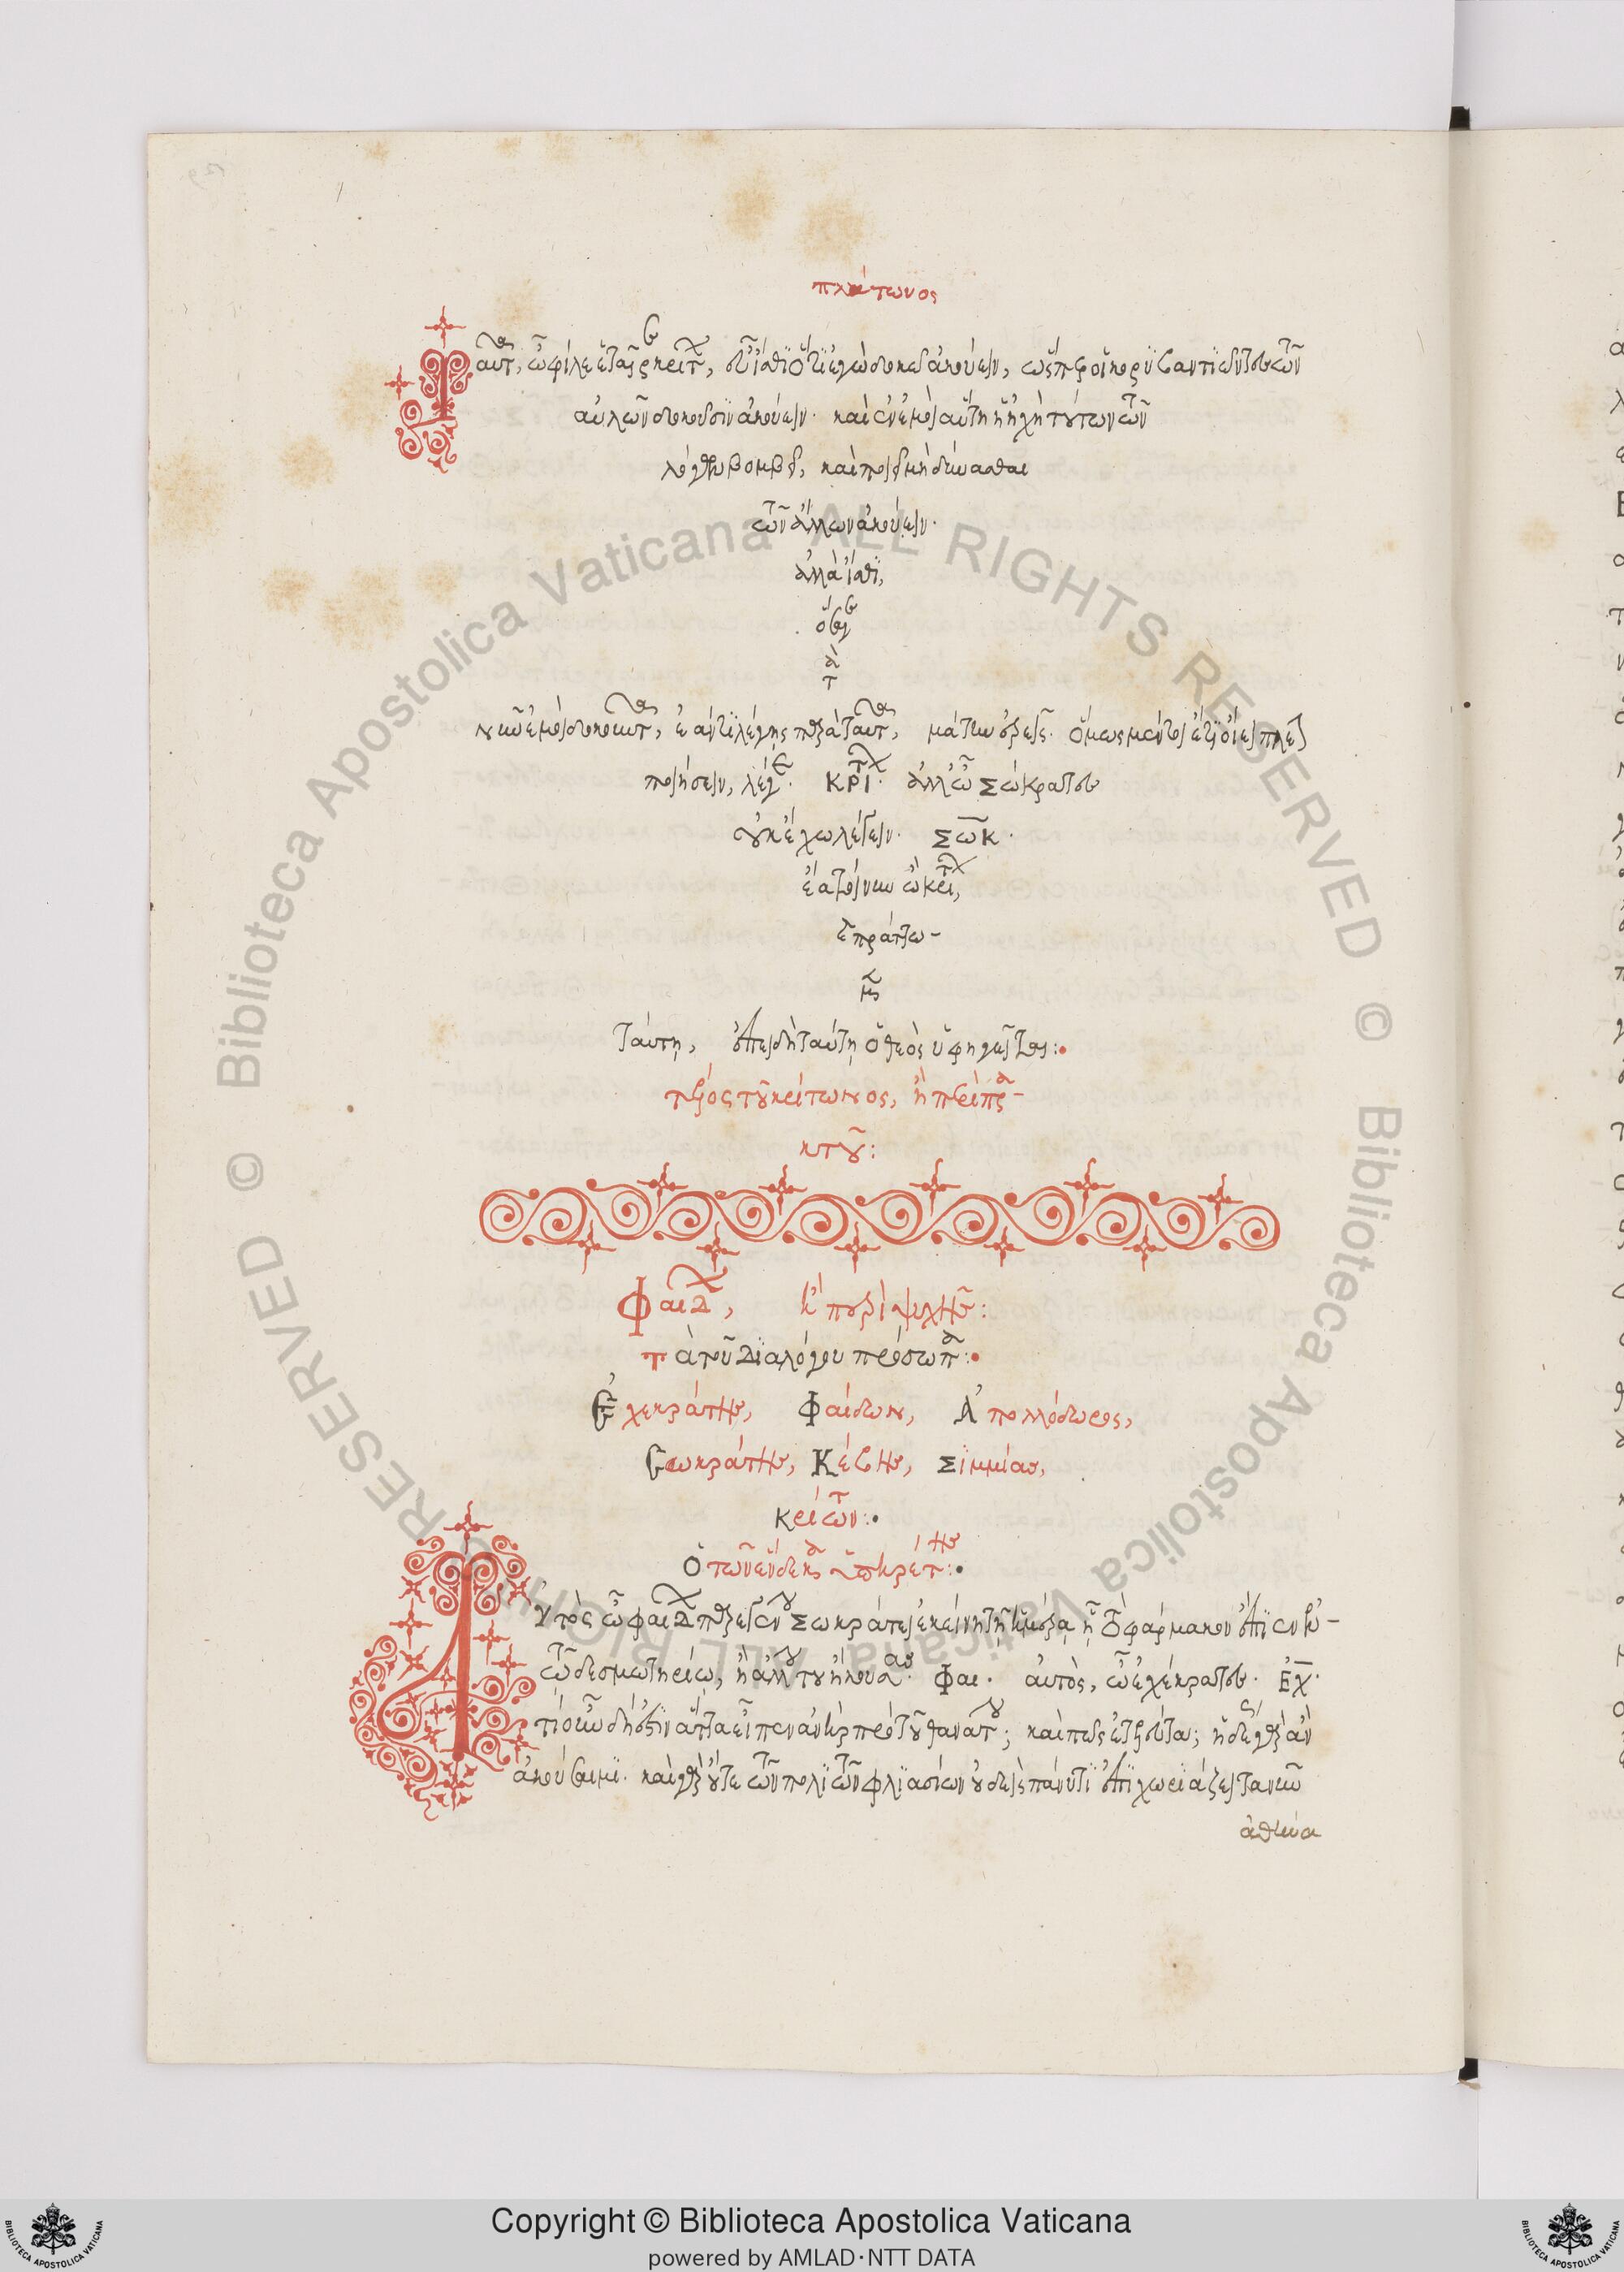 πλάτωνος
Ταῦτα, ὦ φίλε ἑταῖρε κρίτων, εὖ ἴσθι ὅτι ἐγὼ δοκῶ ἀκούειν, ὥσπερ οἱ κορυβαντιῶντες τῶν
αὐλῶν δοκοῦσιν ἀκούειν. καὶ ἐν ἐμοὶ αὕτη ἡ ἠχὴ τούτων τῶν
λόγων βομβεῖ, καὶ ποιεῖ μὴ δύνασθαι
τῶν ἄλλων ἀκούειν.
ἀλλὰ ἴσθι,
ὅσα
τὰ
νῦν ἐμοὶ δοκοῦντα, ἐὰν τι λέγῃς παρὰ ταῦτα, μάτην ἐρεῖς. ὅμως μέντοι εἴ τι οἴει πλέον
ποιήσειν, λέγε. ΚΡΙΤ. ἀλλ' ὦ Σώκρατες
οὐκ ἔχω λέγειν. ΣΩΚ.
ἔα τοίνυν ὦ κρίτων,
καὶ πράττω-
μεν
ταύτῃ, ἐπειδὴ ταύτῃ ὁ θεὸς ὑφηγεῖται:
τέλος τοῦ κρίτωνος, ἢ περὶ πρα-
κτοῦ:
Φαίδων, ἢ περὶ ψυχῆς:
τὰ τοῦ διαλόγου πρόσωπα:
Ἐχεκράτης, Φαίδων, Ἀπολλόδωρος,
Σωκράτης, Κέβης, Σιμμίας,
Κρίτων:
ὁ τῶν ἕνδεκα ὑπηρέτης:
Αὐτὸς ὦ φαίδων παρεγένου Σωκράτει ἐκείνῃ τῇ ἡμέρᾳ ᾗ τὸ φάρμακον ἔπιεν ἐν
τῷ δεσμωτηρίῳ, ἢ ἄλλου του ἤκουσας. Φαι. αὐτὸς, ὦ ἐχέκρατες. Ἐχ.
τί οὖν δή ἐστιν ἅττα εἶπεν ἀνὴρ πρὸ τοῦ θανάτου; καὶ πῶς ἐτελεύτα; ἡδέως γὰρ ἂν
ἀκούσαιμι. καὶ γὰρ οὔτε τῶν πολιτῶν φλιασίων οὐδεὶς πάνυ τι ἐπιχωριάζει τανῦν
ἀθήνα